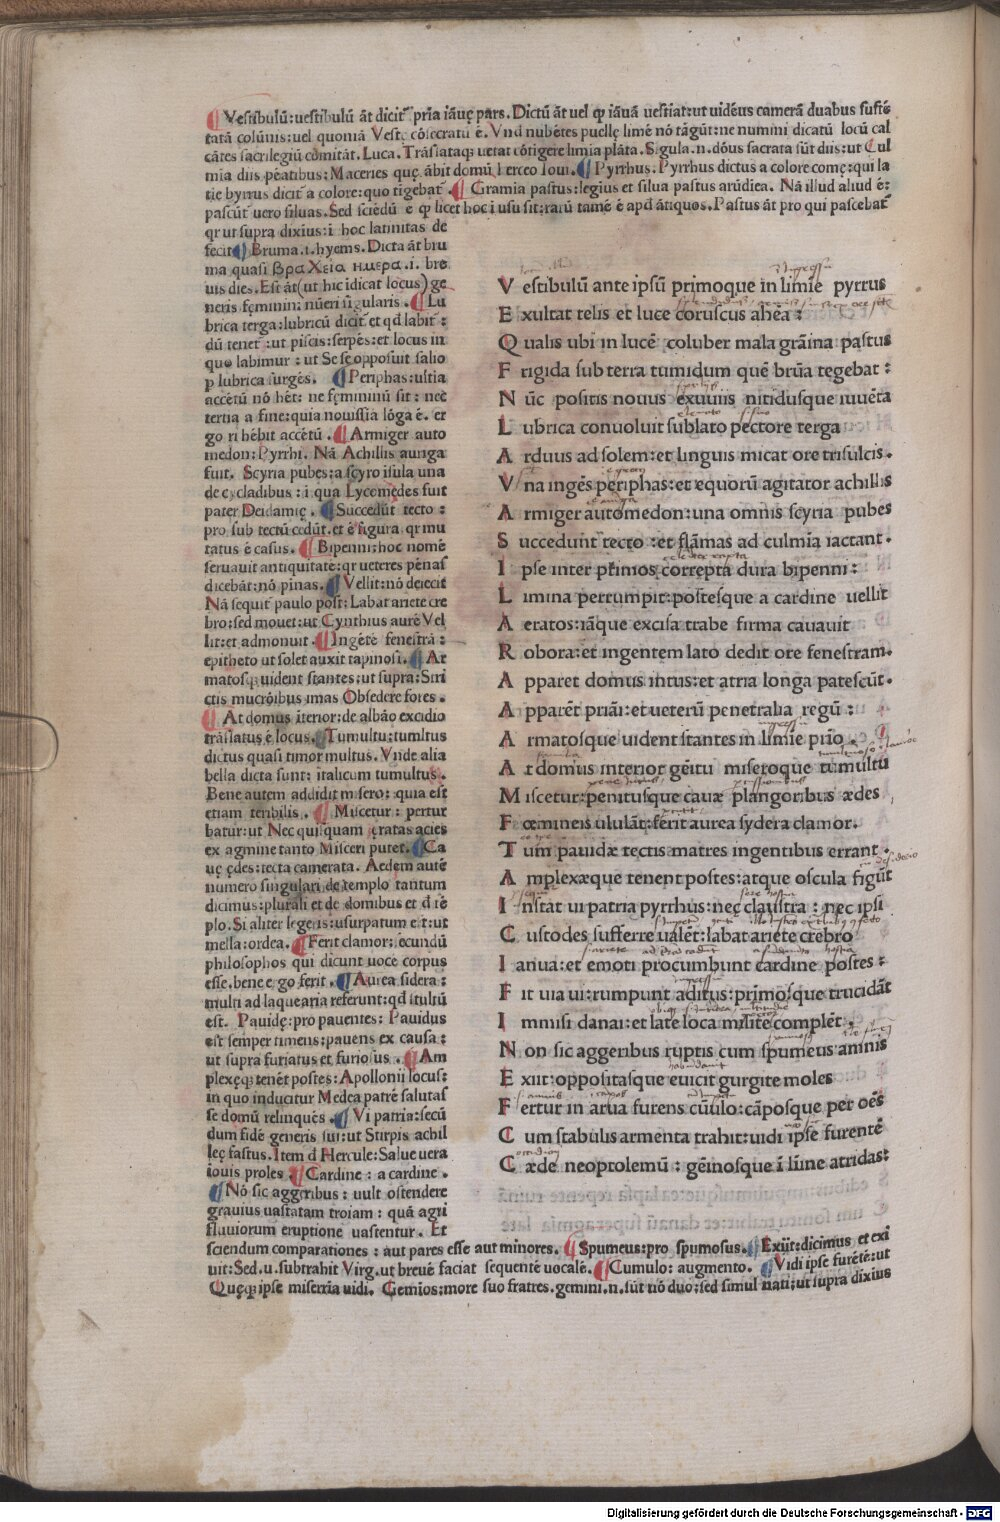 Vestibulū: uestibulū āt dicit᷑ pria iāuę pars. Dictū āt uel ꝙ iāuā uestiat: ut uidēus camerā duabus sustē
tatā colūnis: uel quoniā Vestę cōsecratū ē. Vnd nubētes puellę limē nō tāgūt: ne numini dicatū locū cal
cātes sacrilegiū cōmitāt. Luca. Trāslataqꝫ uetat cōtigere limia plāta. Sīgula .n. dōus sacrata sūt diis: ut Cul
mia diis pēatibus: Maceries quę ābit domū herceo Ioui. Pyrrhus. Pyrrhus dictus a colore comę: qui la
tie byrrus dicit᷑ a colore: quo tigebat᷑. Gramia pastus: legius et silua pastus arūdiea. Nā illud aliud ē:
pascūt uero siluas. Sed sciēdū ē ꝙ licet hoc i usu sit: rarū tamē ē apd ātiquos. Pastus āt pro qui pascebat᷑
qr ut supra dixius: i hoc latinitas de
fecit Bruma .i. hyems. Dicta āt bru
ma quasi βραχεια ημερα .i. bre
uis dies. Est āt (ut hic idicat locus) ge
neris fęminini nūeri sīgularis. Lu
brica terga: lubricū dicit᷑ et qd labit᷑:
dū tenet᷑: ut piscis: serpēs: et locus in
quo labimur: ut Se se opposuit salio
p lubrica surgēs. Periphas: ultia
accētū nō hēt: ne femininū sit: nec
tertia a fine: quia nouissia lōga ē. er
go ri hēbit accētū. Armiger auto
medon: Pyrrhi. Nā Achillis auriga
fuit. Scyria pubes: a scyro isula una
de cycladibus: i qua Lycomedes fuit
pater Deidamię. Succedūt tecto:
pro sub tectū cedūt. et ē figura qr mu
tatus ē casus. Bipenni: hoc nomē
seruauit antiquitatē: qr ueteres pēnas
dicebāt: nō pinas. Vellit: nō deiecit
Nā sequit᷑ paulo post: Labat ariete cre
bro: sed mouet: ut Cynthius aurē Vel
lit: et admonuit. Ingētē fenestrā:
epitheto ut solet auxit tapinosi. Ar
matosqꝫ uident stantes: ut supra: Stri
ctis mucrōibus imas Obsedere fores.
At domus īterior: de albāo excidio
trāslatus ē locus. Tumultu: tumltus
dictus quasi timor multus. Vnde alia
bella dicta sunt: italicum tumultus.
Bene autem addidit misero: quia est
etiam teribilis. Miscetur: pertur
batur: ut Nec quisquam ęratas acies
ex agmine tanto Misceri putet. Ca
uę ędes: tecta camerata. Aedem autē
numero singulari de templo tantum
dicimus: plurali et de domibus et d tē
plo. Si aliter legeris: usurpatum erit: ut
mella: ordea. Ferit clamor: secundū
philosophos qui dicunt uocē corpus
esse. bene ergo ferit. Aurea sidera:
multi ad laquearia referunt: qd stultū
est. Pauidę: pro pauentes: Pauidus
est semper timens: pauens ex causa:
ut supra furiatus et furiosus. Am
plexęqꝫ tenēt postes: Apollonii locus:
in quo inducitur Medea patrē salutas
se domū relinquēs. Vi patria: secū
dum fidē generis sui: ut Stirpis achil
leę fastus. Item d Hercule: Salue uera
iouis proles. Cardine: a cardine.
Nō sic aggeribus: uult ostendere
grauius uastatam troiam: quā agri
fluuiorum eruptione uastentur. Et
sciendum comparationes: aut pares esse aut minores. Spumeus: pro spumosus. Exiit: dicimus et exi
uit: Sed .u. subtrahit Virg. ut breuē faciat sequentē uocalē. Cumulo: augmento. Vidi ipse furētē: ut
Quęqꝫ ipse miserria uidi. Gemios: more suo fratres. gemini .n. sūt nō duo: sed simul nati: ut supra dixius
V estibulū ante ipsū primoque in limie pyrrus
E xultat telis et luce coruscus ahēa:
Q ualis ubi in lucē coluber mala grāina pastus
F rigida sub terra tumidum quē brūa tegebat:
N ūc positis nouus exuuiis nitidusque iuuēta
L ubrica conuoluit sublato pectore terga
A rduus ad solem: et linguis micat ore trisulcis.
V na ingēs periphas: et equorū agitator achillis
A rmiger automedon: una omnis scyria pubes
S uccedunt tecto: et flāmas ad culmia iactant.
I pse inter primos correpta dura bipenni:
L imina perrumpit: postesque a cardine uellit
A eratos: iāque excisa trabe firma cauauit
R obora: et ingentem lato dedit ore fenestram.
A pparet domus intus: et atria longa patescūt.
A pparēt priāi: et ueterū penetralia regū:
A rmatosque uident stantes in limie prio.
A t domus interior gēitu miseroque tumultu
M iscetur: penitusque cauæ plangoribus ædes
F œmineis ululāt: ferit aurea sydera clamor.
T um pauidæ tectis matres ingentibus errant.
A mplexæque tenent postes: atque oscula figūt
I nstat ui patria pyrrhus: neç claustra: nec ipsi
C ustodes sufferre ualēt: labat ariete crebro
I anua: et emoti procumbunt cardine postes:
F it uia ui: rumpunt aditus: primosque trucidāt
I mmisi danai: et late loca milite complēt.
N on sic aggeribus ruptis cum spumeus amnis
E xiit: oppositasque euicit gurgite moles
F ertur in arua furens cūulo: cāposque per oēs
C um stabulis armenta trahit: uidi ipse furentē
C æde neoptolemū: gēinosque i liine atridas:
Digitalisierung gefördert durch die Deutsche Forschungsgemeinschaft - DFG